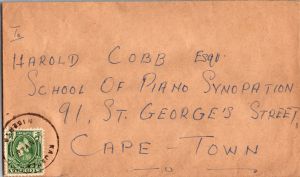 To
HAROLD COBB Esqr.
SCHOOL OF PIANO SYNOPATION
91, ST. GEORGE'S STREET,
CAPE-TOWN